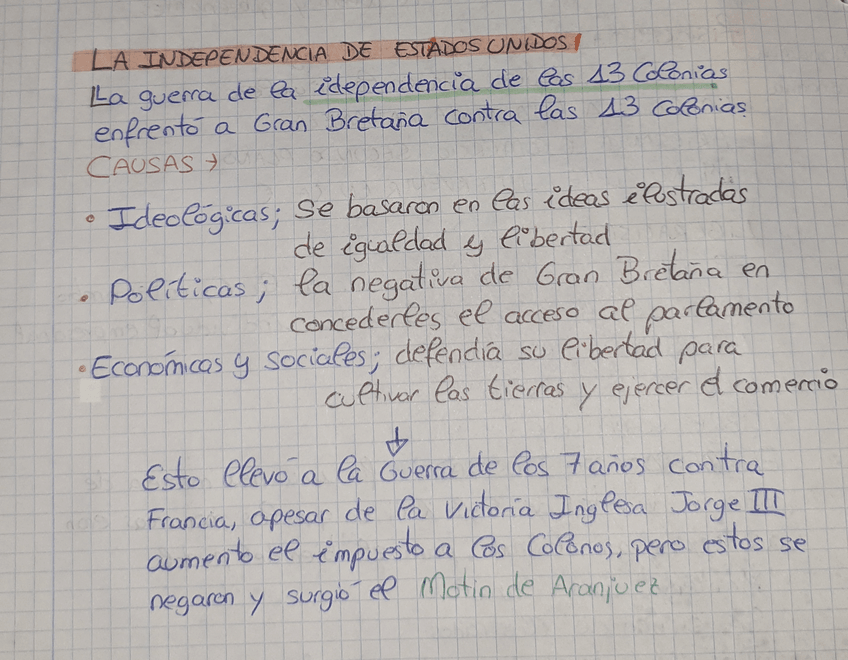 LA INDEPENDENCIA DE ESTADOS UNIDOS
La guerra de la idependencia de las 13 Colonias
enfrentó a Gran Bretaña contra las 13 Colonias.
CAUSAS →
• Ideológicas; Se basaron en las ideas ilustradas
de igualdad y libertad
• Políticas; la negativa de Gran Bretaña en
concederles el acceso al parlamento
• Económicas y sociales; defendía su libertad para
cultivar las tierras y ejercer el comercio
↓
Esto llevó a la Guerra de los 7 años contra
Francia, apesar de la victoria Inglesa Jorge III
aumento el impuesto a los Colonos, pero estos se
negaron y surgió el Motín de Aranjuez